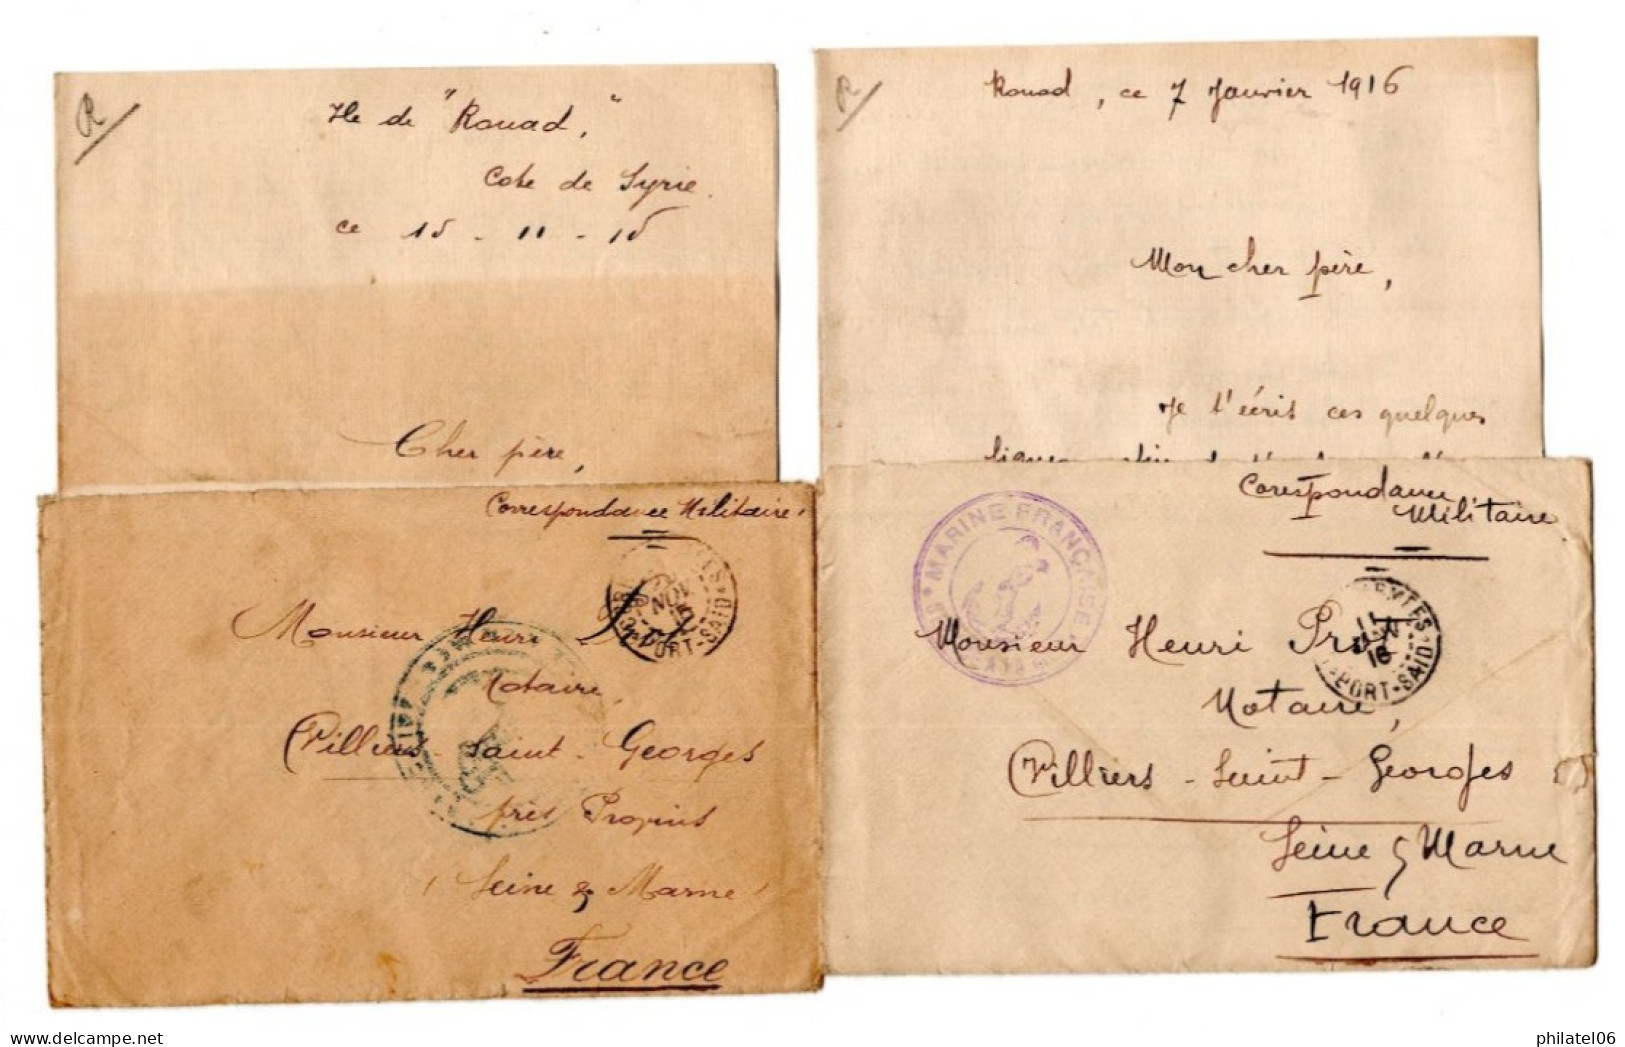 R
Ile de "Rouad,"
Cote de Syrie.
ce 15 - 11 - 15
Cher père,
Correspondance Militaire
NOV
15
PORT-SAID
Monsieur Henri
Notaire,
Villiers-Saint-Georges
près Provins
(Seine & Marne)
France
R
Rouad, ce 7 Janvier 1916
Mon cher père,
Je t'écris ces quelques
lignes
Corespondance
Militaire
MARINE FRANÇAISE
11
16
PORT-SAID
Monsieur Henri
Notaire,
Villiers-Saint-Georges
Seine & Marne
France
philatel06